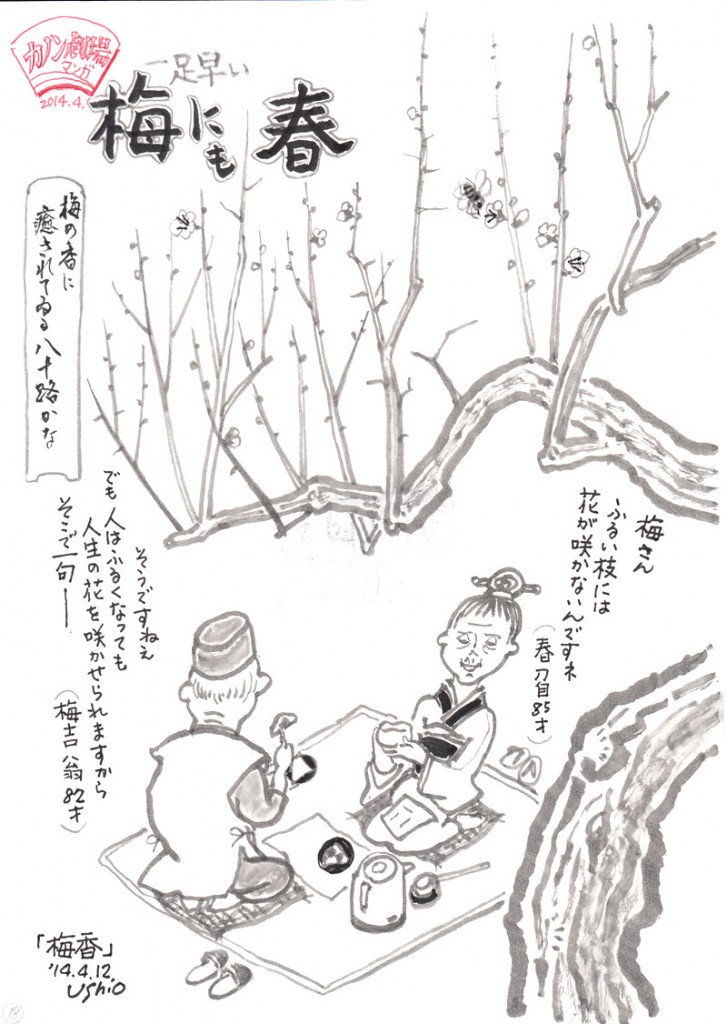 カノン劇場
マンガ
2014.4.
一足早い
梅にも春
梅の香に
癒されてゐる八十路かな
梅さん
ふるい枝には
花が咲かないんですネ
(春刀自85才)
そうですねえ
でも人はふるくなっても
人生の花を咲かせられますから
そこで一句──
(梅吉翁82才)
「梅香」
'14.4.12.
Ushio
18